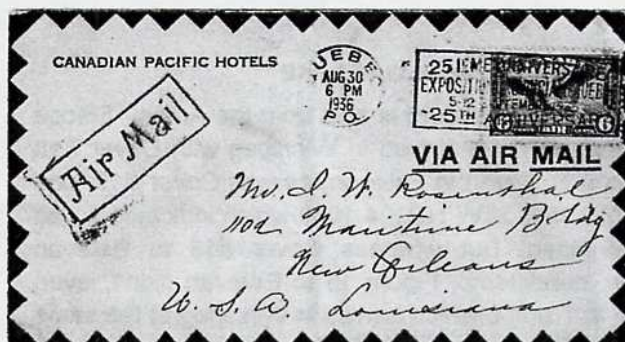 CANADIAN PACIFIC HOTELS
QUEBEC
AUG 30
6 PM
1936
P.Q.
25IEME ANNIVERSAIRE
EXPOSITION PROVINCIALE QUEBEC
5-12 SEPTEMBER
25TH ANNIVERSARY
6 6
Air Mail
VIA AIR MAIL
Mr. I. W. Rosenthal
1102 Maritime Bldg
New Orleans
U. S. A. Louisiana